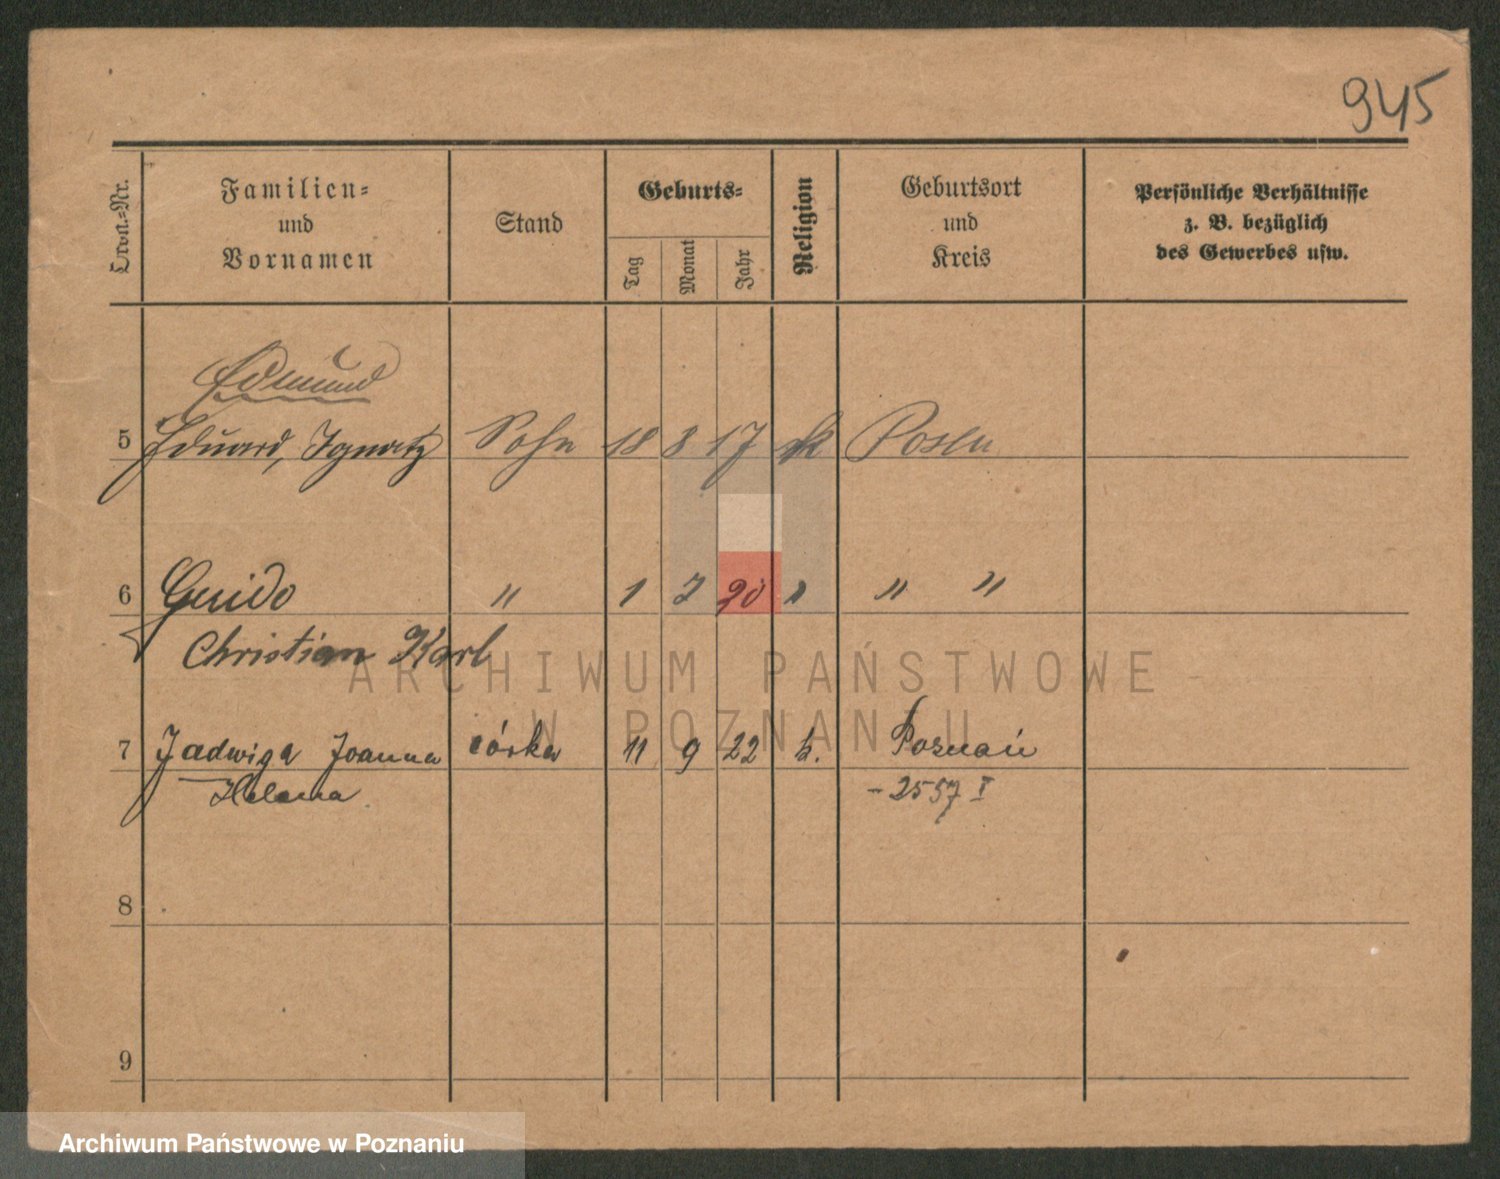 945
Familien-
und
Vornamen
Stand
Geburts-
Tag
Monat
Jahr
Religion
Geburtsort
und
Kreis
Persönliche Verhältnisse
z. B. bezüglich
des Gewerbes usw.
Edmund
5 Eduard, Ignatz Sohn 18 8 17 k Posen
6 Guido " 1 2 20 " " "
Christian Karl
ARCHIWUM PAŃSTWOWE
W POZNANIU
7 Jadwiga Joanna córka 11 9 22 k. Poznań
Helena - 2557 I
8
9
Archiwum Państwowe w Poznaniu